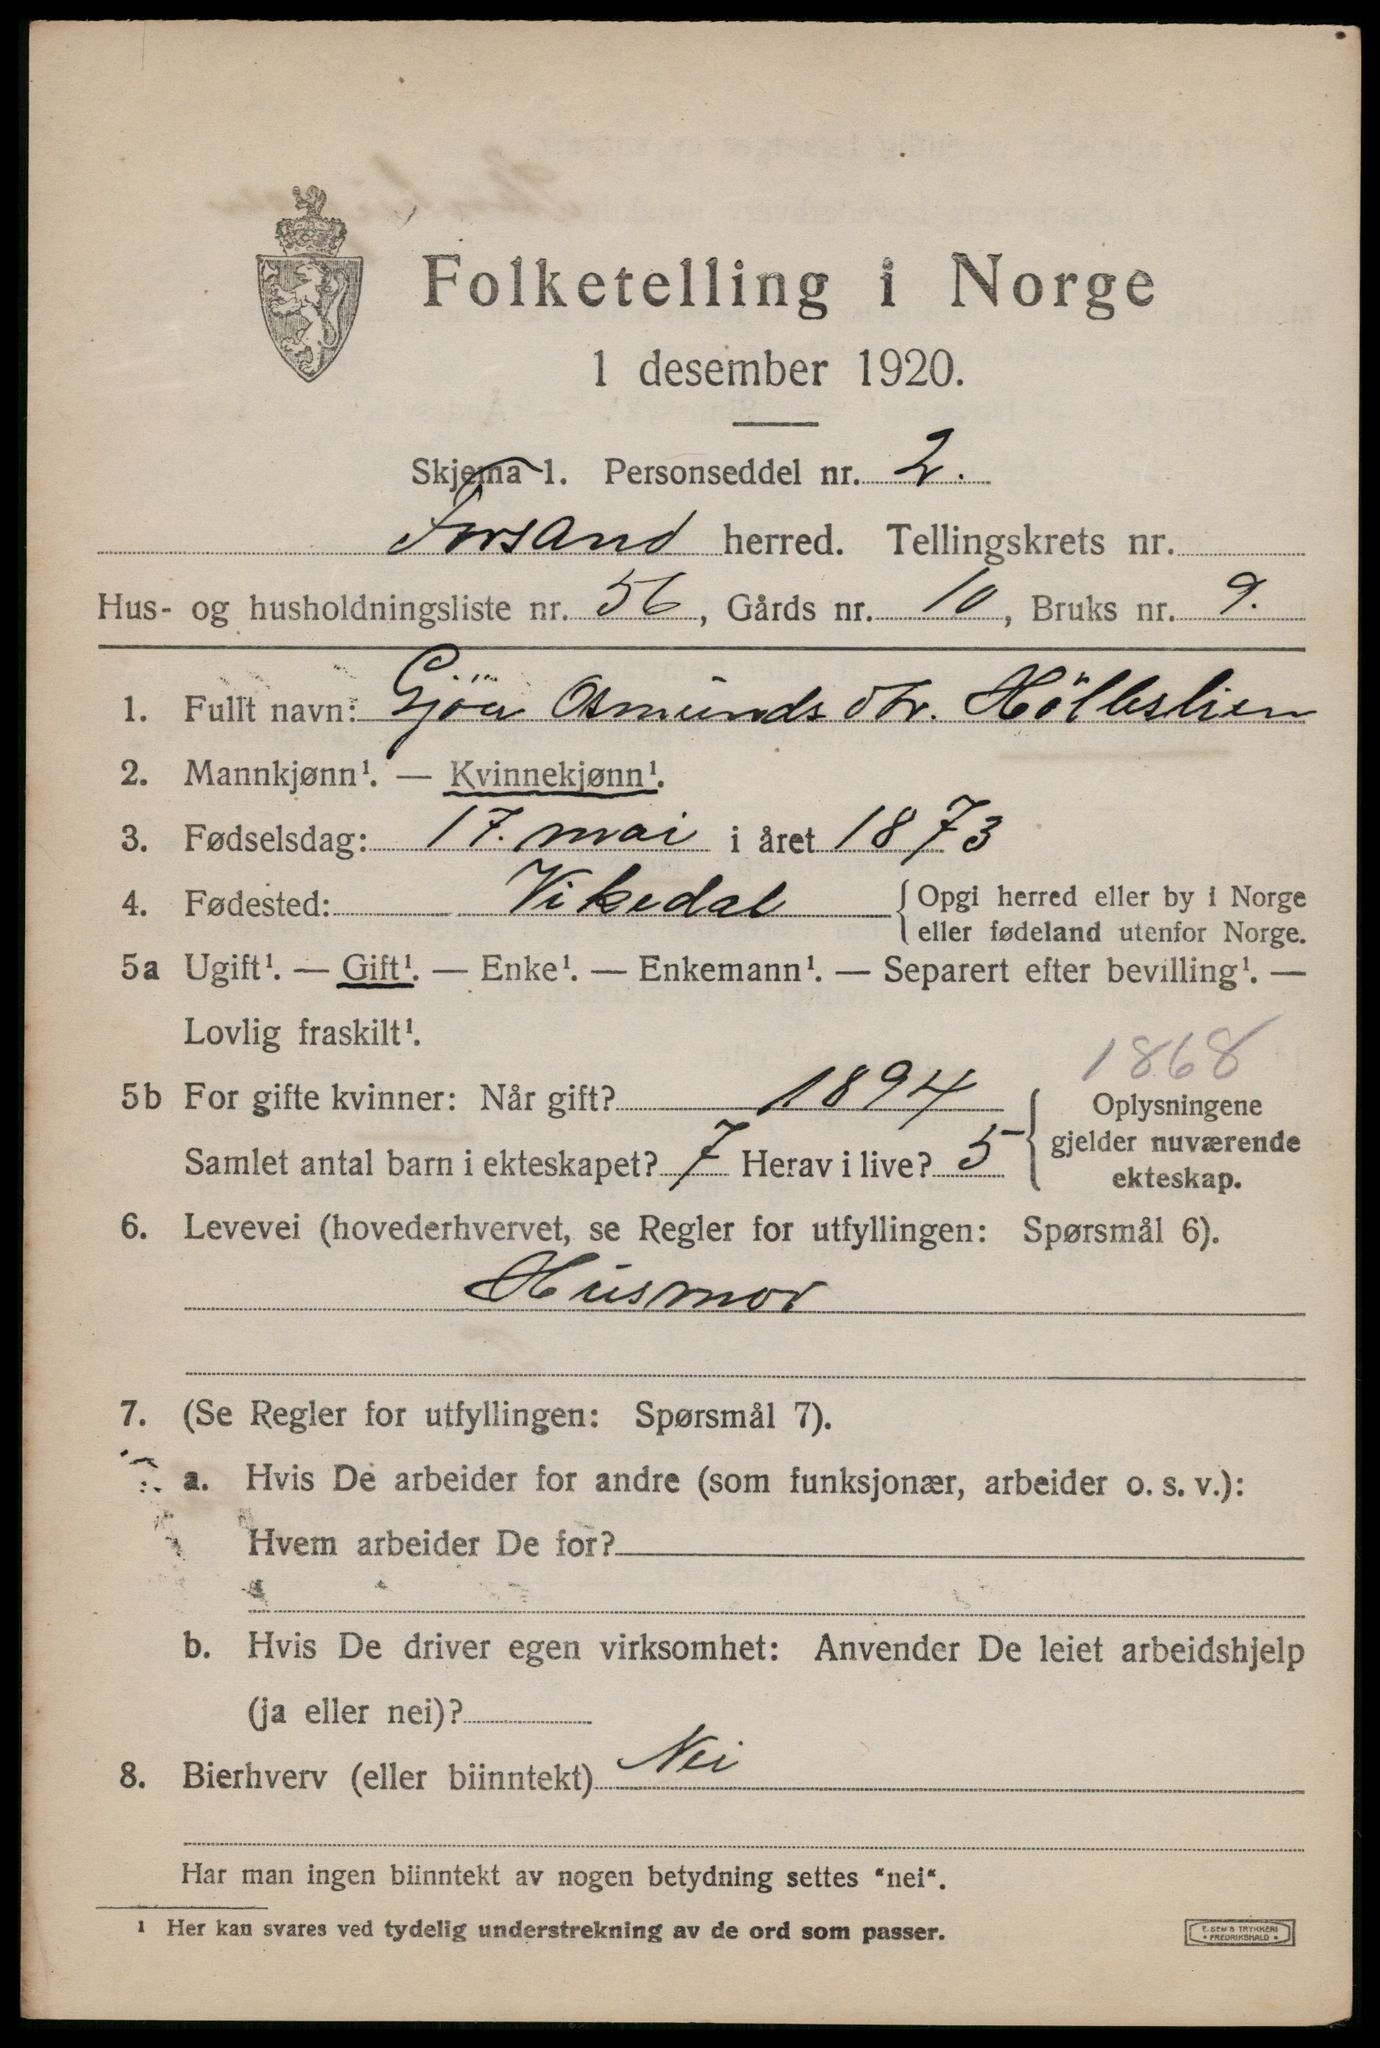 Folketelling i Norge
1 desember 1920.
Skjema 1. Personseddel nr. 2.
Forsand herred. Tellingskrets nr.
Hus- og husholdningsliste nr. 56, Gårds nr. 10, Bruks nr. 9.
1. Fullt navn: Gjöa Osmundsdtr. Hölleslien
2. Mannkjønn¹. — Kvinnekjønn¹.
3. Fødselsdag: 17. mai i året 1873
4. Fødested: Vikedal { Opgi herred eller by i Norge
eller fødeland utenfor Norge.
5a Ugift¹. — Gift¹. — Enke¹. — Enkemann¹. — Separert efter bevilling¹. —
Lovlig fraskilt¹.
1868
5b For gifte kvinner: Når gift? 1894
Samlet antal barn i ekteskapet? 7 Herav i live? 5
Oplysningene
gjelder nuværende
ekteskap.
6. Levevei (hovederhvervet, se Regler for utfyllingen: Spørsmål 6).
Husmor
7. (Se Regler for utfyllingen: Spørsmål 7).
a. Hvis De arbeider for andre (som funksjonær, arbeider o. s. v.):
Hvem arbeider De for?
b. Hvis De driver egen virksomhet: Anvender De leiet arbeidshjelp
(ja eller nei)?
8. Bierhverv (eller biinntekt) Nei
Har man ingen biinntekt av nogen betydning settes "nei".
¹ Her kan svares ved tydelig understrekning av de ord som passer.
E. SEM'S TRYKKERI
FREDRIKSHALD